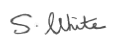 S. White